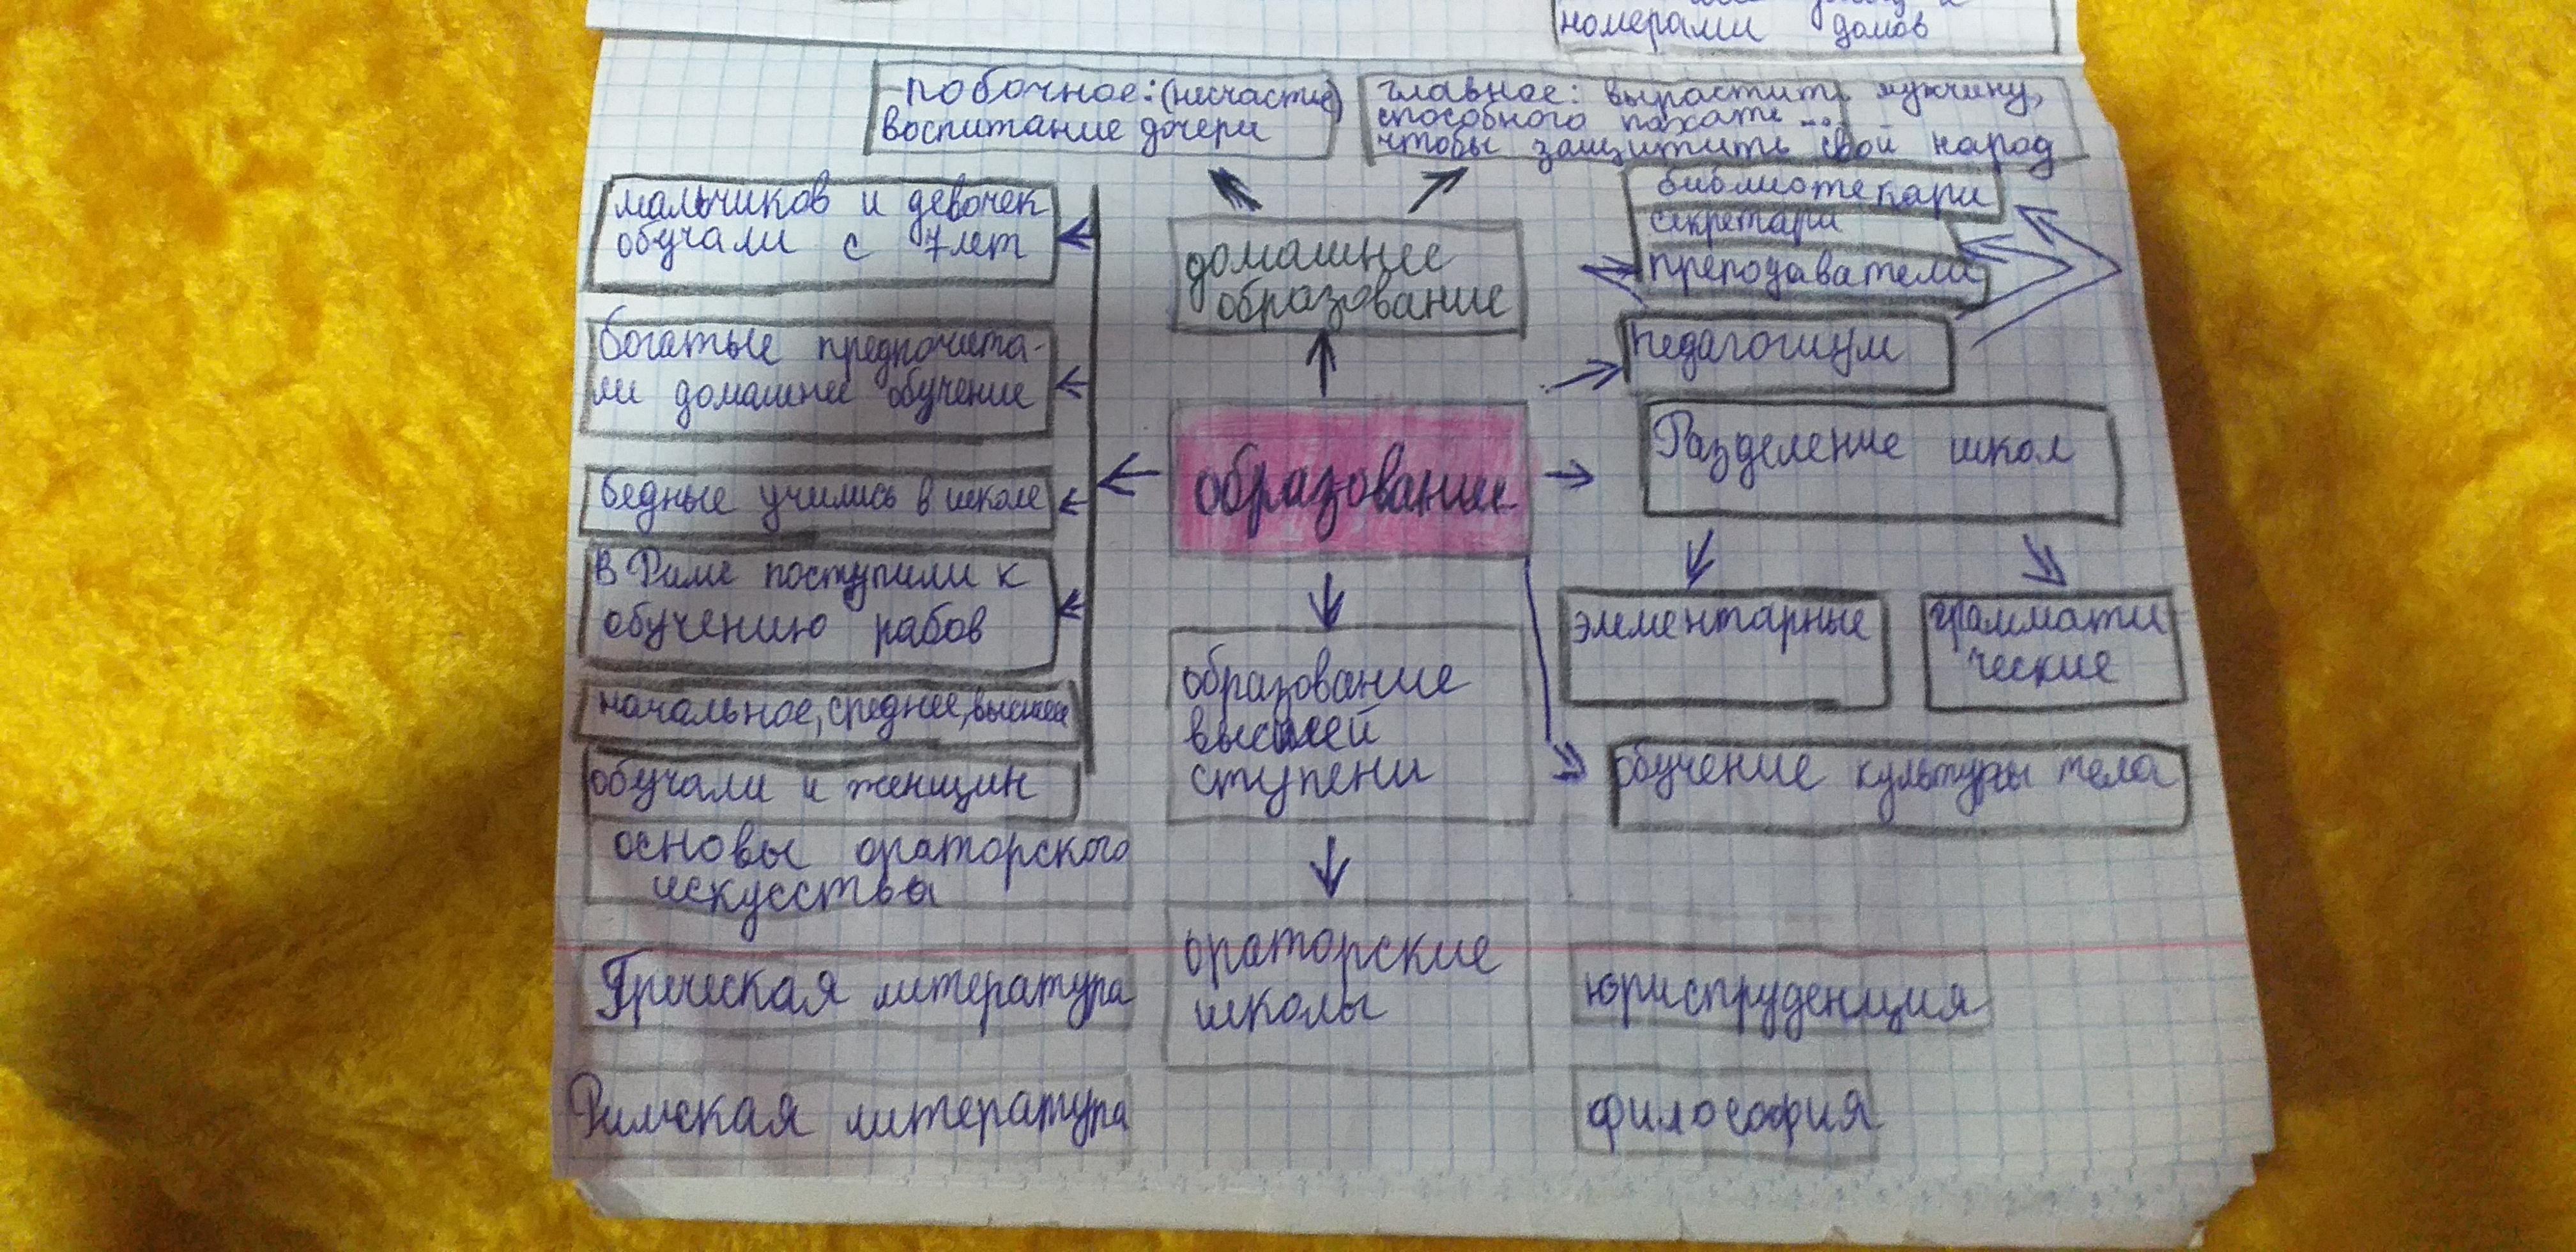 номерами домов
побочное: (несчастье)
воспитание дочери
главное: вырастить мужчину,
способного пахать ...
чтобы защитить свой народ
мальчиков и девочек
обучали с 7 лет
богатые предпочита-
ли домашнее обучение
бедные учились в школе
В Риме поступили к
обучению рабов
начальное, среднее, высшее
обучали и женщин
основы ораторского
искусства
Греческая литература
Римская литература
домашнее
образование
образование
образование
высшей
ступени
ораторские
школы
библиотекари
секретари
преподаватели
педагогиум
Разделение школ
элементарные
граммати
ческие
обучение культуры тела
юриспруденция
философия